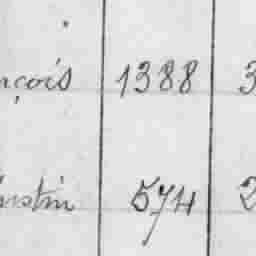 nçois 1388 3
ustin 574 2